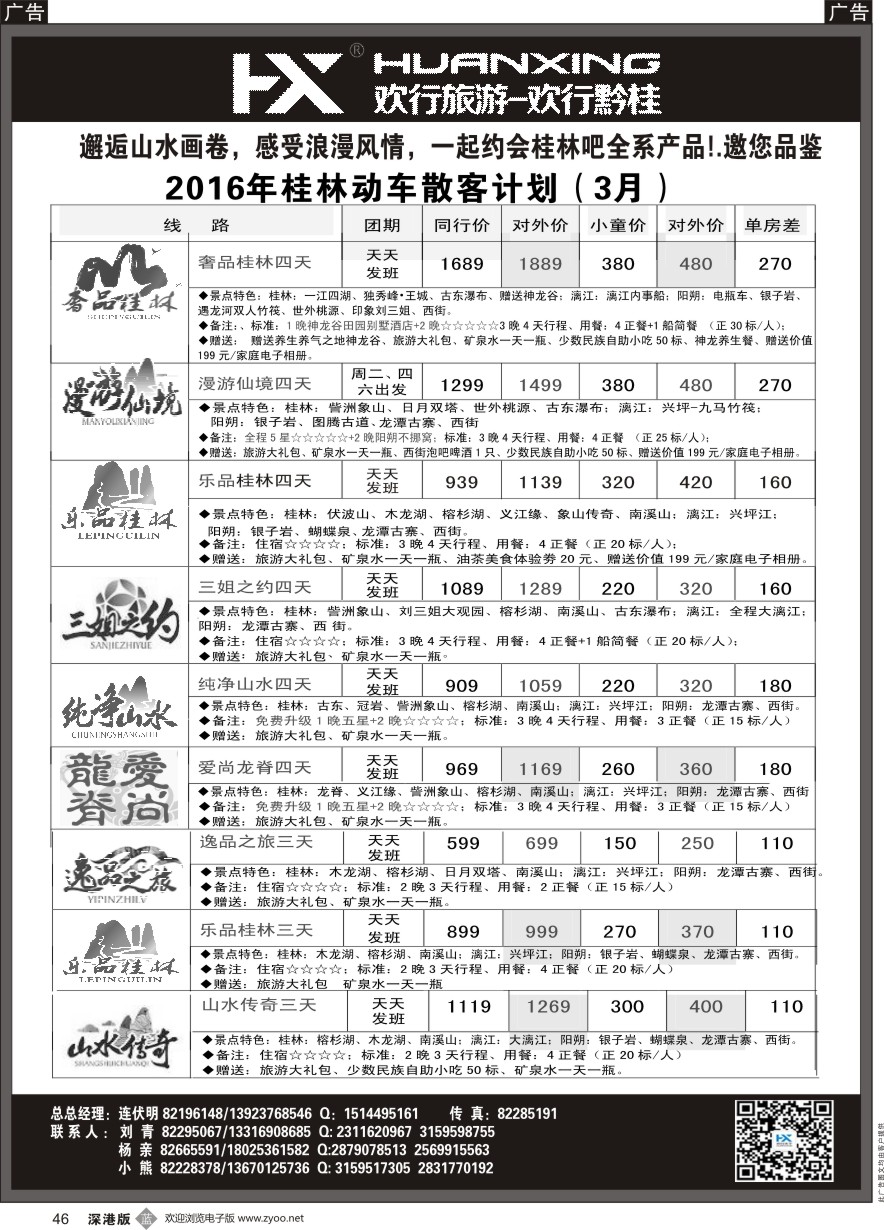 广告
广告
HX® HUANXING
欢行旅游-欢行黔桂
邂逅山水画卷，感受浪漫风情，一起约会桂林吧全系产品!.邀您品鉴
2016年桂林动车散客计划（3月）
线 路 团期 同行价 对外价 小童价 对外价 单房差
奢品桂林
SHEPINGUILIN
奢品桂林四天 天天发班 1689 1889 380 480 270
◆景点特色：桂林：一江四湖、独秀峰·王城、古东瀑布、赠送神龙谷；漓江：漓江内事船；阳朔：电瓶车、银子岩、
遇龙河双人竹筏、世外桃源、印象刘三姐、西街。
◆备注：、标准：1晚神龙谷田园别墅酒店+2晚☆☆☆☆☆3晚4天行程、用餐：4正餐+1船简餐 （正30标/人）；
◆赠送： 赠送养生养气之地神龙谷、旅游大礼包、矿泉水一天一瓶、少数民族自助小吃50标、神龙养生餐、赠送价值
199元/家庭电子相册。
漫游仙境
MANYOUXIANJING
漫游仙境四天 周二、四六出发 1299 1499 380 480 270
◆景点特色：桂林：訾洲象山、日月双塔、世外桃源、古东瀑布；漓江：兴坪-九马竹筏；
阳朔：银子岩、图腾古道、龙潭古寨、西街
◆备注：全程5星☆☆☆☆☆+2晚阳朔不挪窝；标准：3晚4天行程、用餐：4正餐 （正25标/人）；
◆赠送：旅游大礼包、矿泉水一天一瓶、西街泡吧啤酒1只、少数民族自助小吃50标、赠送价值199元/家庭电子相册。
乐品桂林
LEPINGUILIN
乐品桂林四天 天天发班 939 1139 320 420 160
◆景点特色：桂林：伏波山、木龙湖、榕杉湖、义江缘、象山传奇、南溪山；漓江：兴坪江；
阳朔：银子岩、蝴蝶泉、龙潭古寨、西街。
◆备注：住宿☆☆☆☆；标准：3晚4天行程、用餐：4正餐（正20标/人）；
◆赠送：旅游大礼包、矿泉水一天一瓶、油茶美食体验券20元、赠送价值199元/家庭电子相册。
三姐之约
SANJIEZHIYUE
三姐之约四天 天天发班 1089 1289 220 320 160
◆景点特色：桂林：訾洲象山、刘三姐大观园、榕杉湖、南溪山、古东瀑布；漓江：全程大漓江；
阳朔：龙潭古寨、西 街。
◆备注：住宿☆☆☆☆；标准：3晚4天行程、用餐：4正餐+1船简餐（正20标/人）；
◆赠送：旅游大礼包、矿泉水一天一瓶。
纯净山水
纯净山水四天 天天发班 909 1059 220 320 180
◆景点特色：桂林：古东、冠岩、訾洲象山、榕杉湖、南溪山；漓江：兴坪江；阳朔：龙潭古寨、西街。
◆备注：免费升级1晚五星+2晚☆☆☆☆；标准：3晚4天行程、用餐：3正餐（正15标/人）
◆赠送：旅游大礼包、矿泉水一天一瓶。
龍愛
脊尚
爱尚龙脊四天 天天发班 969 1169 260 360 180
◆景点特色：桂林：龙脊、义江缘、訾洲象山、榕杉湖、南溪山；漓江：兴坪江；阳朔：龙潭古寨、西街
◆备注：免费升级1晚五星+2晚☆☆☆☆；标准：3晚4天行程、用餐：3正餐（正15标/人）
◆赠送：旅游大礼包、矿泉水一天一瓶。
逸品之旅
YIPINZHILV
逸品之旅三天 天天发班 599 699 150 250 110
◆景点特色：桂林：木龙湖、榕杉湖、日月双塔、南溪山；漓江：兴坪江；阳朔：龙潭古寨、西街。
◆备注：住宿☆☆☆☆；标准：2晚3天行程、用餐：2正餐（正15标/人）
◆赠送：旅游大礼包、矿泉水一天一瓶。
乐品桂林
LEPINGUILIN
乐品桂林三天 天天发班 899 999 270 370 110
◆景点特色：桂林：木龙湖、榕杉湖、南溪山；漓江：兴坪江；阳朔：银子岩、蝴蝶泉、龙潭古寨、西街。
◆备注：住宿☆☆☆☆；标准：2晚3天行程、用餐：4正餐（正20标/人）
◆赠送：旅游大礼包 矿泉水一天一瓶
山水传奇
SHANGSHUICHUANQI
山水传奇三天 天天发班 1119 1269 300 400 110
◆景点特色：桂林：榕杉湖、木龙湖、南溪山；漓江：大漓江；阳朔：银子岩、蝴蝶泉、龙潭古寨、西街。
◆备注：住宿☆☆☆☆；标准：2晚3天行程、用餐：4正餐（正20标/人）
◆赠送：旅游大礼包、少数民族自助小吃50标、矿泉水一天一瓶。
总总经理：连伏明 82196148/13923768546 Q：1514495161 传 真：82285191
联系人：刘 青 82295067/13316908685 Q: 2311620967 3159598755
杨 亲 82665591/18025361582 Q:2879078513 2569915563
小 熊 82228378/13670125736 Q: 3159517305 2831770192
此广告图文均由客户提供
46 深港版 蓝 欢迎浏览电子版 www.zyoo.net